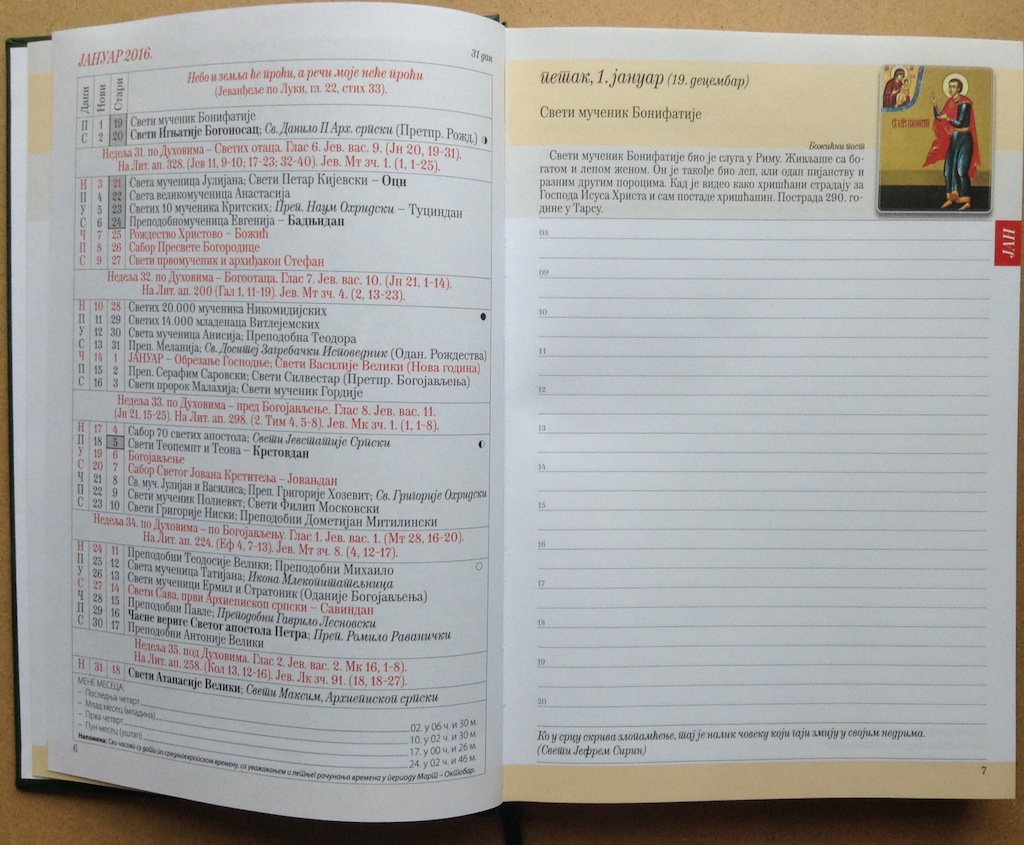 ЈАНУАР 2016.
31 дан
Дани Нови Стари
Небо и земља ће проћи, а речи моје неће проћи
(Јеванђеље по Луки, гл. 22, стих 33).
П 1 19 Свети мученик Бонифатије
С 2 20 Свети Игњатије Богоносац; Св. Данило II Арх. српски (Претпр. Рожд.)
Недеља 31. по Духовима – Светих отаца. Глас 6. Јев. вас. 9. (Јн 20, 19-31).
На Лит. ап. 328. (Јев 11, 9-10; 17-23; 32-40). Јев. Мт зч. 1. (1, 1-25).
Н 3 21 Света мученица Јулијана; Свети Петар Кијевски – Оци
П 4 22 Света великомученица Анастасија
У 5 23 Светих 10 мученика Критских; Преп. Наум Охридски – Туциндан
С 6 24 Преподобномученица Евгенија – Бадњидан
Ч 7 25 Рождество Христово – Божић
П 8 26 Сабор Пресвете Богородице
С 9 27 Свети првомученик и архиђакон Стефан
Недеља 32. по Духовима – Богоотаца. Глас 7. Јев. вас. 10. (Јн 21, 1-14).
На Лит. ап. 200 (Гал 1, 11-19). Јев. Мт зч. 4. (2, 13-23).
Н 10 28 Светих 20.000 мученика Никомидијских
П 11 29 Светих 14.000 младенаца Витлејемских
У 12 30 Света мученица Анисија; Преподобна Теодора
С 13 31 Преп. Меланија; Св. Доситеј Загребачки Исповедник (Одан. Рождества)
Ч 14 1 ЈАНУАР – Обрезање Господње; Свети Василије Велики (Нова година)
П 15 2 Преп. Серафим Саровски; Свети Силвестар (Претпр. Богојављења)
С 16 3 Свети пророк Малахија; Свети мученик Гордије
Недеља 33. по Духовима – пред Богојављење. Глас 8. Јев. вас. 11.
(Јн 21, 15-25). На Лит. ап. 298. (2. Тим 4, 5-8). Јев. Мк зч. 1. (1, 1-8).
Н 17 4 Сабор 70 светих апостола; Свети Јевстатије Српски
П 18 5 Свети Теопемпт и Теона – Крстовдан
У 19 6 Богојављење
С 20 7 Сабор Светог Јована Крститеља – Јовандан
Ч 21 8 Св. муч. Јулијан и Василиса; Преп. Григорије Хозевит; Св. Григорије Охридски
П 22 9 Свети мученик Полиевкт; Свети Филип Московски
С 23 10 Свети Григорије Ниски; Преподобни Дометијан Митилински
Недеља 34. по Духовима – по Богојављењу. Глас 1. Јев. вас. 1. (Мт 28, 16-20).
На Лит. ап. 224. (Еф 4, 7-13). Јев. Мт зч. 8. (4, 12-17).
Н 24 11 Преподобни Теодосије Велики; Преподобни Михаило
П 25 12 Света мученица Татијана; Икона Млекопитатељница
У 26 13 Свети мученици Ермил и Стратоник (Оданије Богојављења)
С 27 14 Свети Сава, први Архиепископ српски – Савиндан
Ч 28 15 Преподобни Павле; Преподобни Гаврило Лесновски
П 29 16 Часне вериге Светог апостола Петра; Преп. Ромило Раванички
С 30 17 Преподобни Антоније Велики
Недеља 35. под Духовима. Глас 2. Јев. вас. 2. Мк 16, 1-8).
На Лит. ап. 258. (Кол 13, 12-16). Јев. Лк зч. 91. (18, 18-27).
Н 31 18 Свети Атанасије Велики; Свети Максим, Архиепископ српски
МЕНЕ МЕСЕЦА:
– Последња четврт 02. у 06 ч. и 30 м.
– Млад месец (младина) 10. у 02 ч. и 30 м.
– Прва четврт 17. у 00 ч. и 26 м.
– Пун месец (уштап) 24. у 02 ч. и 46 м.
Напомена: Сви часови су дати по средњоевропском времену, са уважавањем и летњег рачунања времена у периоду Март – Октобар.
6
петак, 1. јануар (19. децембар)
Свети мученик Бонифатије
Божићни пост
Свети мученик Бонифатије био је слуга у Риму. Живљаше са бо-
гатом и лепом женом. Он је такође био леп, али одан пијанству и
разним другим пороцима. Кад је видео како хришћани страдају за
Господа Исуса Христа и сам постаде хришћанин. Пострада 290. го-
дине у Тарсу.
ЈАН
08
09
10
11
12
13
14
15
16
17
18
19
20
Ко у срцу скрива злопамћење, тај је налик човеку који гаји змију у својим недрима.
(Свети Јефрем Сирин)
7